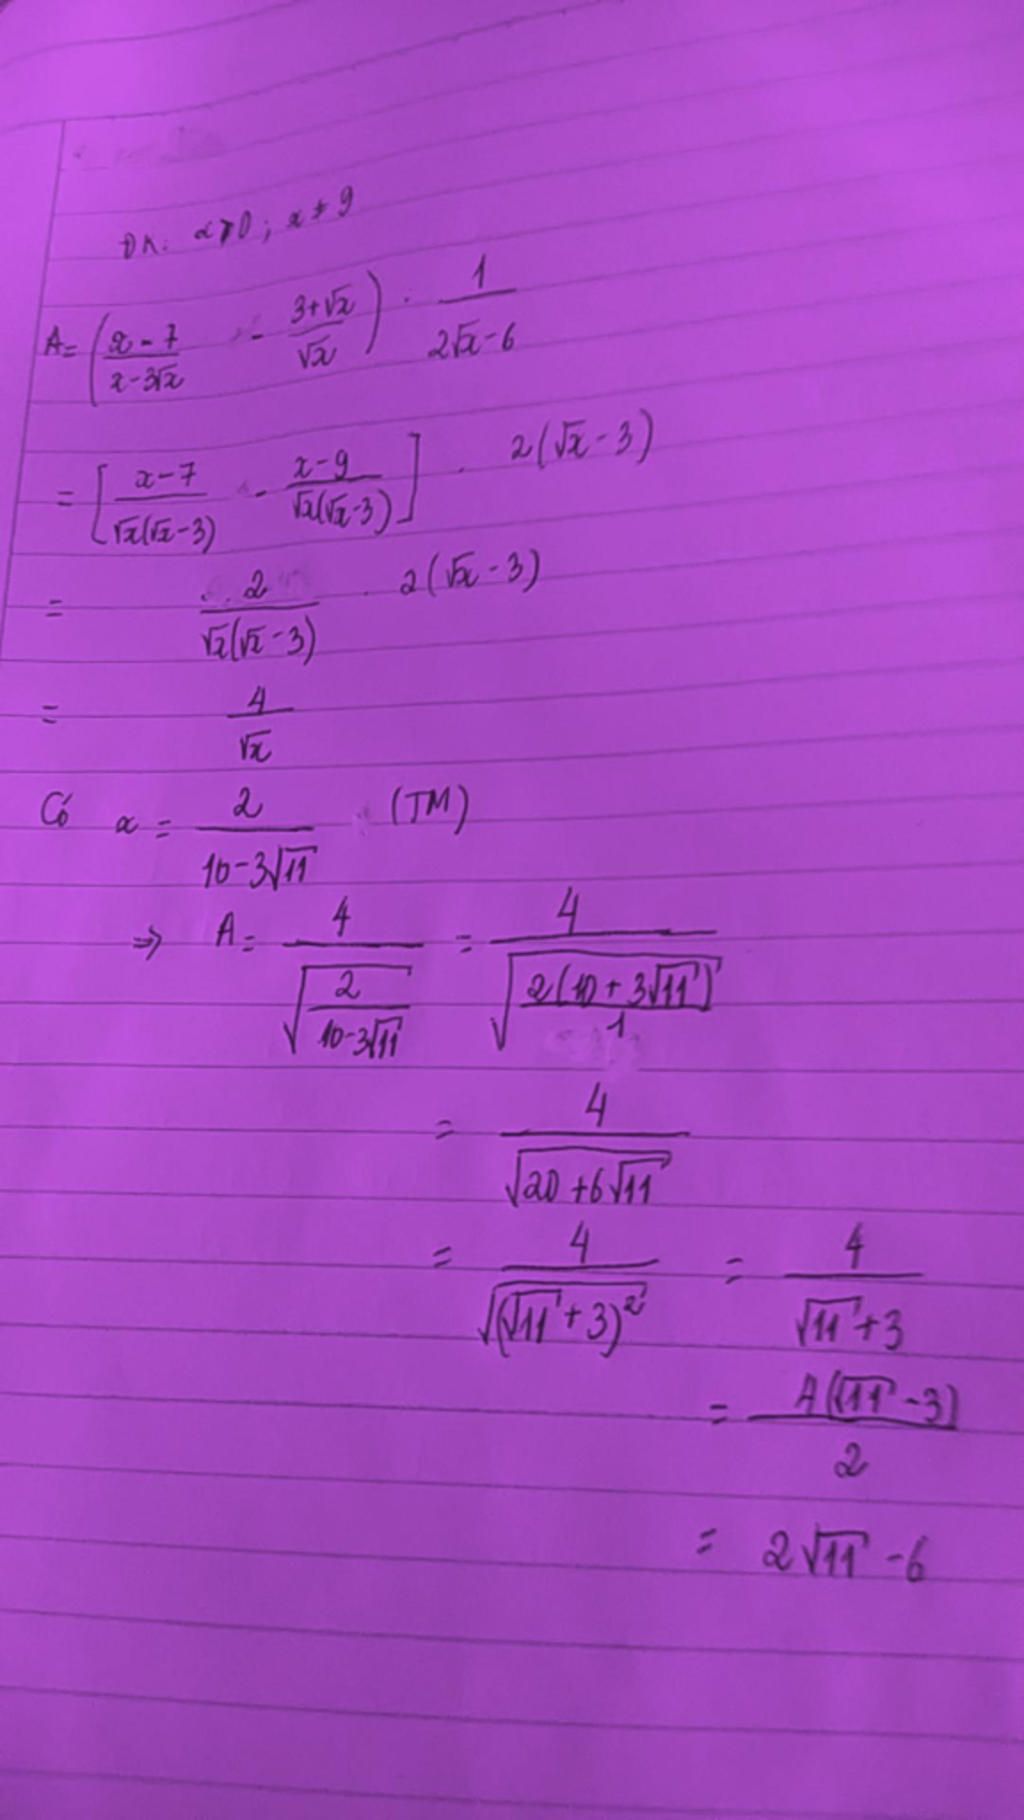 ĐK: x > 0 ; x ≠ 9
A = (\frac{x-7}{x-3√x} - \frac{3+√x}{√x}) : \frac{1}{2√x-6}
= [\frac{x-7}{√x(√x-3)} - \frac{x-9}{√x(√x-3)}] . 2(√x-3)
= \frac{2}{√x(√x-3)} . 2(√x-3)
= \frac{4}{√x}
Có x = \frac{2}{10-3√11} (TM)
⇒ A = \frac{4}{\sqrt{\frac{2}{10-3√11}}} = \frac{4}{\sqrt{\frac{2(10+3√11)}{1}}}
= \frac{4}{\sqrt{20+6√11}}
= \frac{4}{\sqrt{(√11+3)^2}} = \frac{4}{√11+3}
= \frac{4(√11-3)}{2}
= 2√11-6